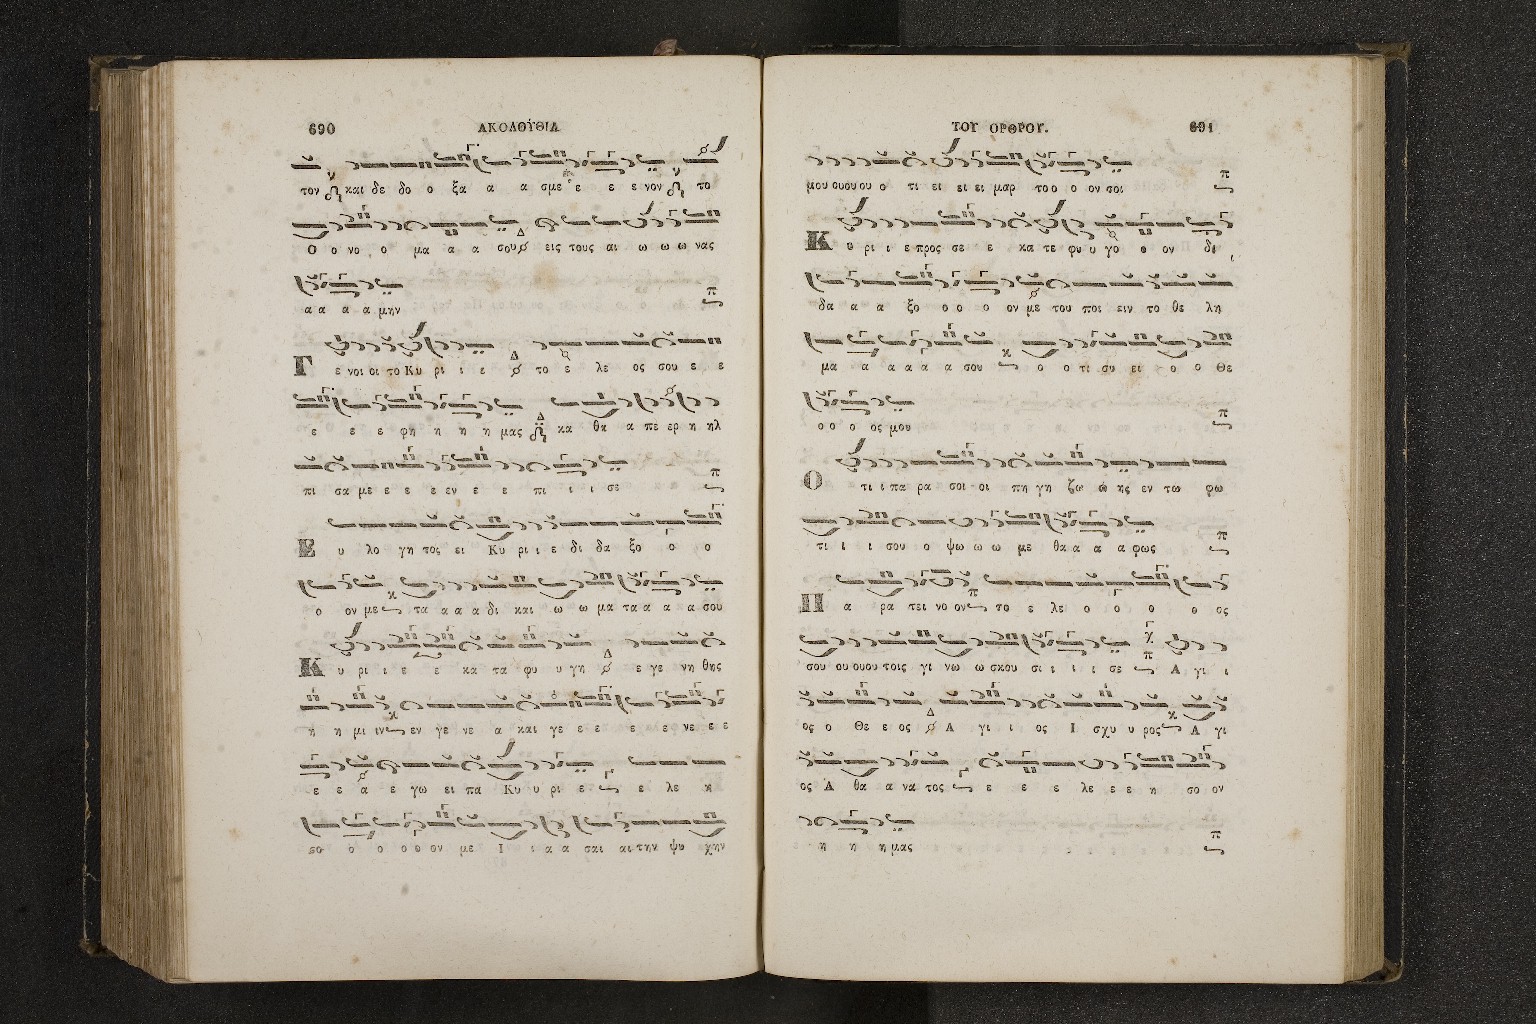 690 ΑΚΟΛΟΥΘΙΑ
τον και δε δο ο ξα α α σμε ε ε ε νον το
Ο ο νο ο μα α α σου εις τους αι ω ω ω νας
α α α α μην
Γ ε νοι οι το Κυ ρι ι ε το ε λε ος σου ε ε
ε ε ε φη η η η μας κα θα α πε ερ η ηλ
πι σα με ε ε ε εν ε ε πι ι ι σε
Ε υ λο γη τος ει Κυ ρι ι ε δι δα ξο ο ο
ο ον με τα α α α δι και ω ω μα τα α α α σου
Κ υ ρι ι ε ε κα τα φυ υ γη ε γε νη θης
η η μι ιν εν γε νε α και γε ε ε ε ε νε ε ε
ε ε α ε γω ει πα Κυ υ ρι ε ε λε η
σο ο ο ο ο ον με Ι ι α α σαι αι την ψυ χην
ΤΟΥ ΟΡΘΡΟΥ. 691
μου ου ου ου ο τι ει ει ει μαρ το ο ο ον σοι
Κ υ ρι ι ε προς σε ε κα τε φυ υ γο ο ον δι
δα α α ξο ο ο ο ον με του ποι ειν το θε λη
μα α α α α α σου ο ο τι συ ει ο ο Θε
ο ο ο ος μου
Ο τι ι πα ρα σοι οι πη γη ζω ω ης εν τω φω
τι ι ι σου ο ψω ω ω με θα α α α φως
Π α ρα τει νο ον το ε λε ο ο ο ο ος
σου ου ου ου τοις γι νω ω σκου σι ι ι ι σε Α γι ι
ος ο Θε ε ος Α γι ι ος Ι σχυ υ ρος Α γι
ος Α θα α να τος ε ε ε λε ε ε η σο ον
η η η μας